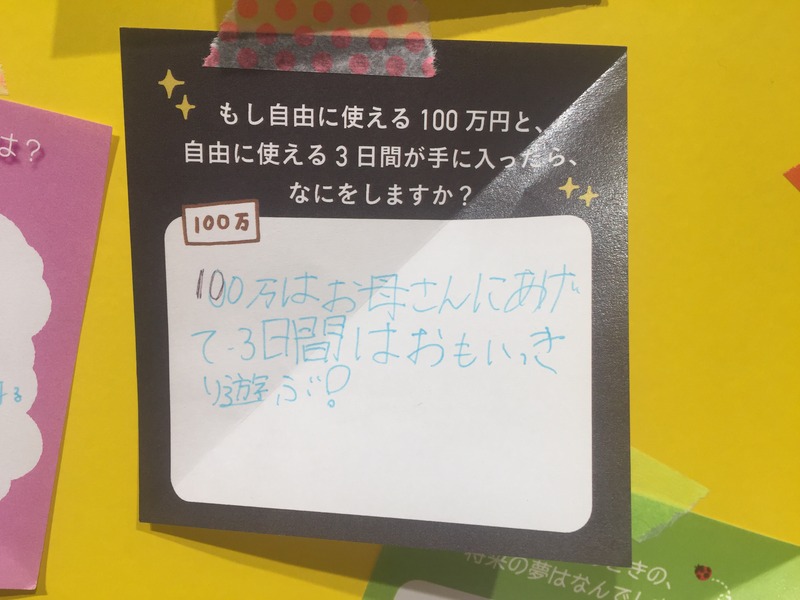 は?
もし自由に使える100万円と、
自由に使える3日間が手に入ったら、
なにをしますか?
100万
100万はお母さんにあげ
て、3日間はおもいっき
り遊ぶ!
きの、
将来の夢はなんでし